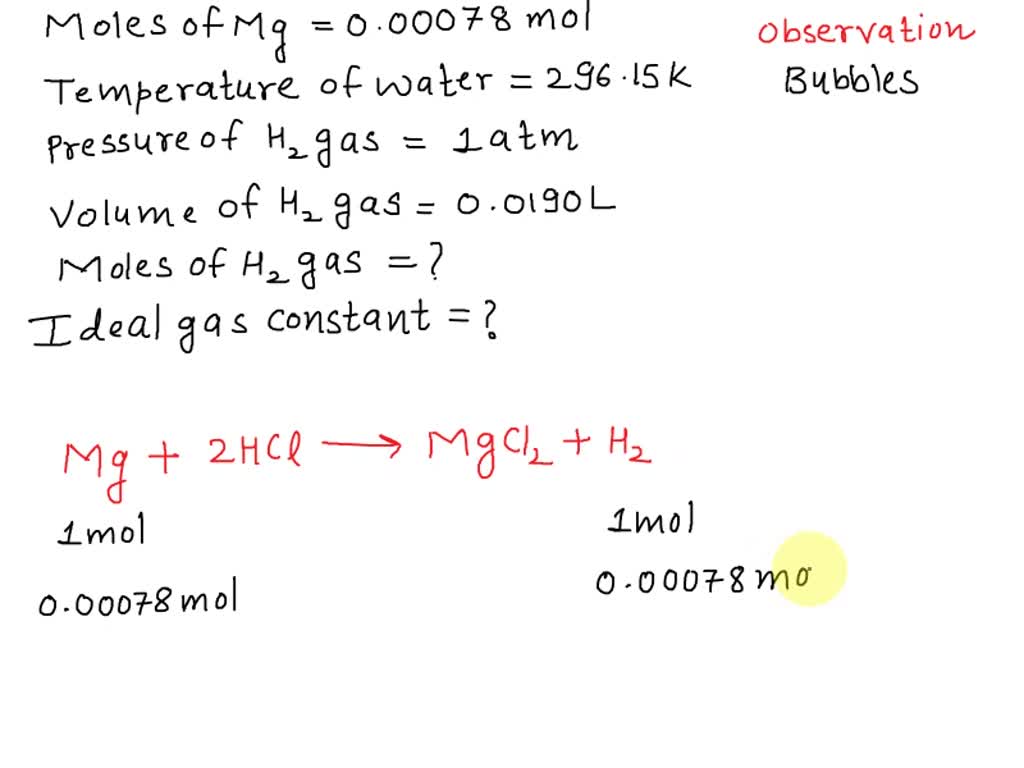 Moles of Mg = 0.00078 mol
Observation
Temperature of water = 296.15K
Bubbles
Pressure of H₂ gas = 1 atm
Volume of H₂ gas = 0.0190L
Moles of H₂ gas = ?
Ideal gas constant = ?
Mg + 2HCl → MgCl₂ + H₂
1 mol 1 mol
0.00078 mol 0.00078 mo